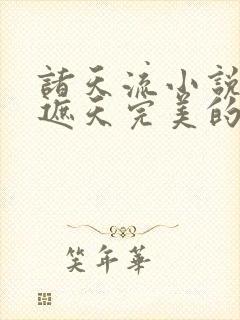 諸天流小說
遮天完美的
笑年華